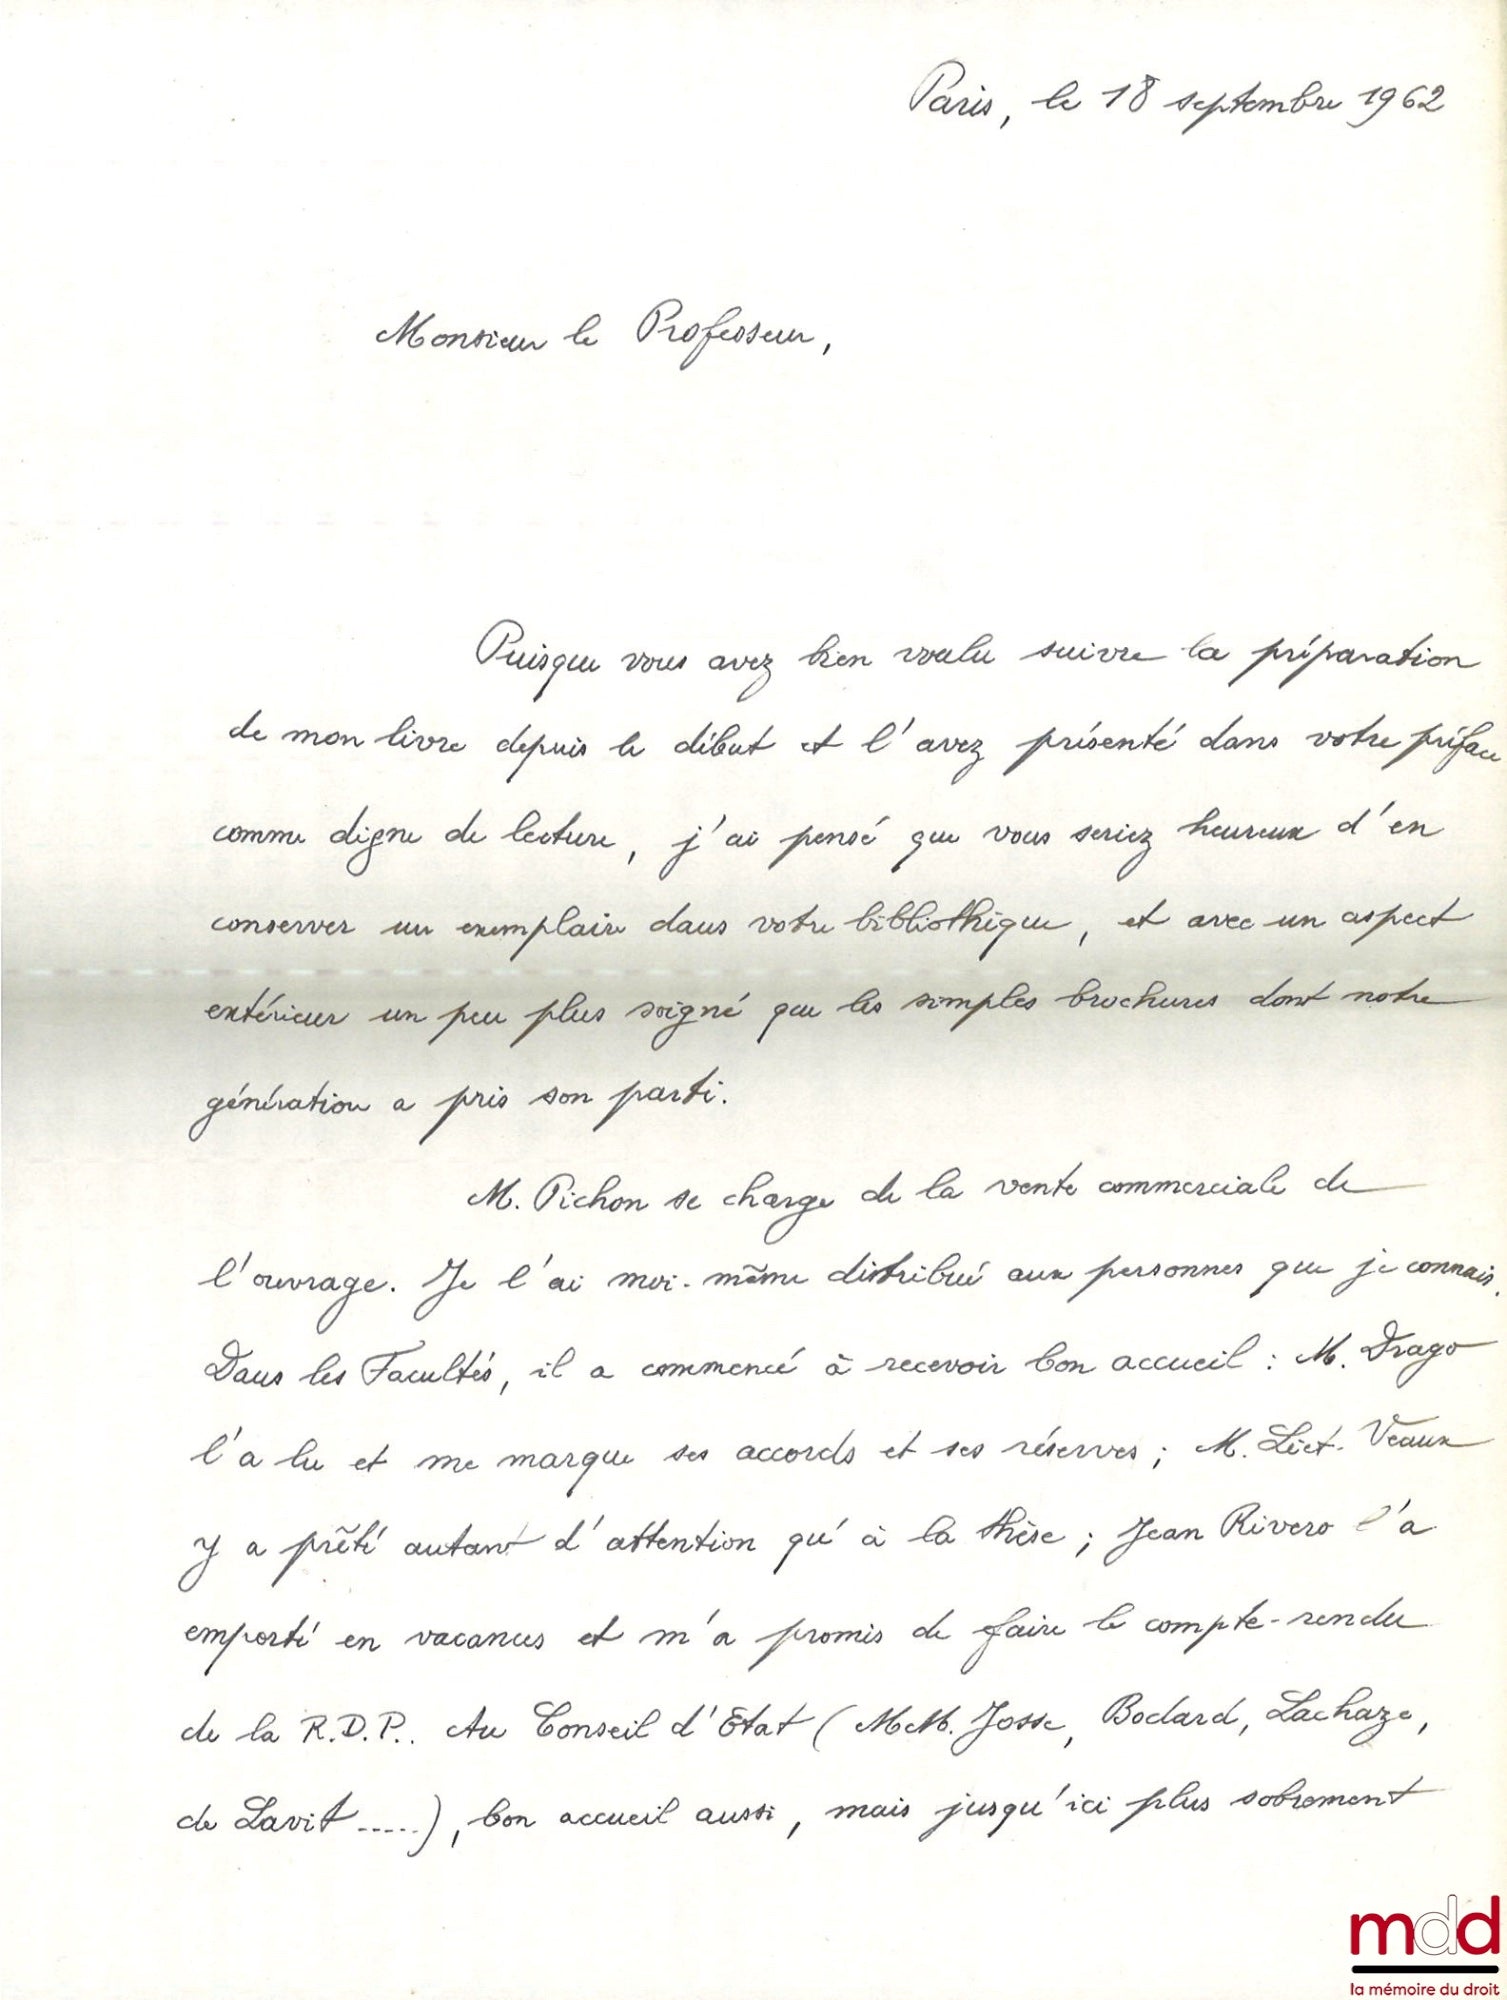 Paris, le 18 septembre 1962
Monsieur le Professeur,
Puisque vous avez bien voulu suivre la préparation
de mon livre depuis le début et l'avez présenté dans votre préface
comme digne de lecture, j'ai pensé que vous seriez heureux d'en
conserver un exemplaire dans votre bibliothèque, et avec un aspect
extérieur un peu plus soigné que les simples brochures dont notre
génération a pris son parti.
M. Pichon se charge de la vente commerciale de
l'ouvrage. Je l'ai moi-même distribué aux personnes que je connais.
Dans les Facultés, il a commencé à recevoir bon accueil : M. Drago
l'a lu et me marque ses accords et ses réserves ; M. Liet-Veaux
y a prêté autant d'attention qu'à la thèse ; Jean Rivero l'a
emporté en vacances et m'a promis de faire le compte-rendu
de la R.D.P.. Au Conseil d'Etat (MM. Josse, Bodard, Lachaze,
de Lavit .....), bon accueil aussi, mais jusqu'ici plus sobrement
mdd
la mémoire du droit